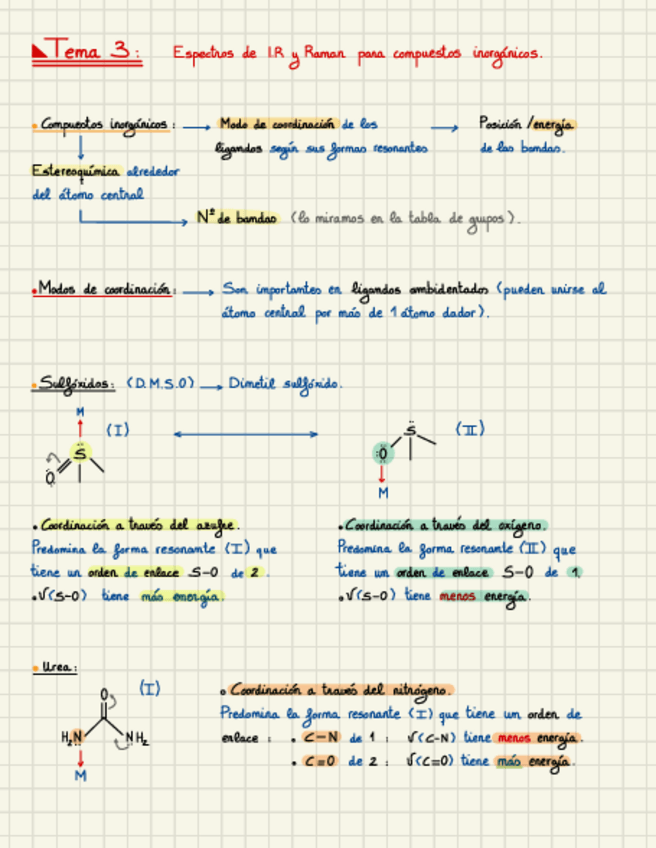 Tema 3: Espectros de I.R y Raman para compuestos inorgánicos.
• Compuestos inorgánicos: → Modo de coordinación de los → Posición / energía
ligandos según sus formas resonantes de las bandas.
Estereoquímica alrededor
del átomo central
Nº de bandas (lo miramos en la tabla de grupos).
• Modos de coordinación: → Son importantes en ligandos ambidentados (pueden unirse al
átomo central por más de 1 átomo dador).
• Sulfóxidos: (D.M.S.O) → Dimetil sulfóxido.
M
(I)
S
O
S
(II)
O
M
• Coordinación a través del azufre.
Predomina la forma resonante (I) que
tiene un orden de enlace S-O de 2.
• √(S-O) tiene más energía.
• Coordinación a través del oxígeno.
Predomina la forma resonante (II) que
tiene un orden de enlace S-O de 1.
• √(S-O) tiene menos energía.
• Urea:
O
(I)
H₂N NH₂
M
• Coordinación a través del nitrógeno.
Predomina la forma resonante (I) que tiene un orden de
enlace : • C-N de 1 : √(C-N) tiene menos energía.
• C=O de 2 : √(C=O) tiene más energía.